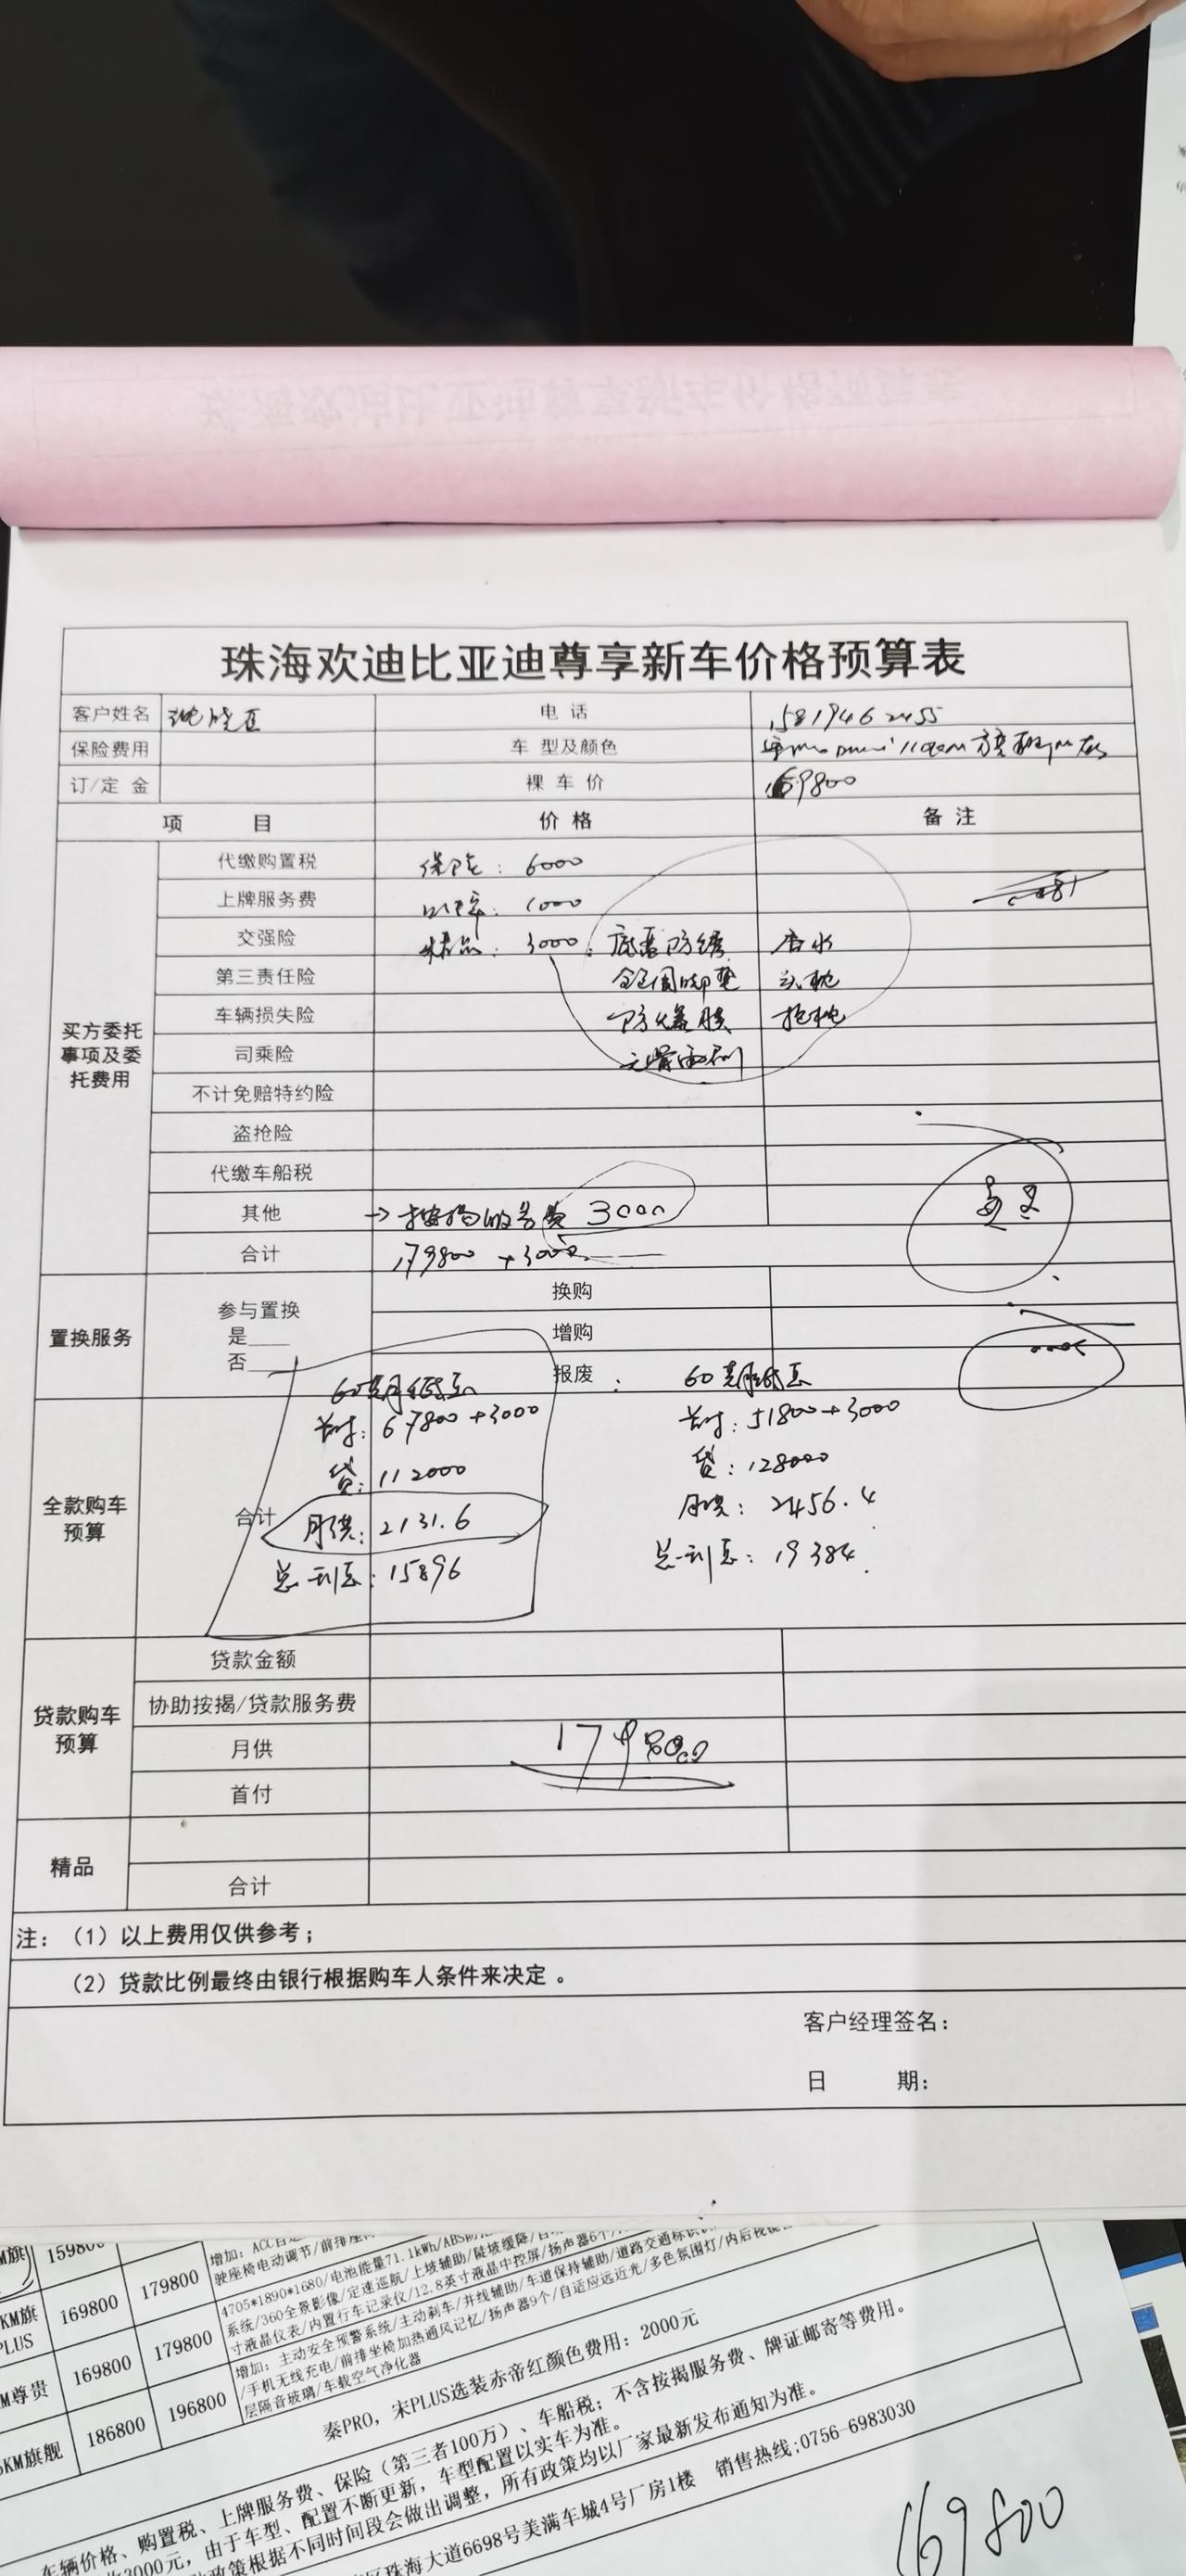 珠海欢迪比亚迪尊享新车价格预算表
客户姓名 电 话 15819462455
保险费用 车 型及颜色
订/定 金 裸 车 价 169800
项 目 价 格 备 注
买方委托事项及委托费用
代缴购置税 保险: 6000
上牌服务费 上牌: 1000
交强险 精品: 3000: 底盘防锈 香水
第三责任险 全包围脚垫 头枕
车辆损失险 防爆膜 抱枕
司乘险 无骨雨刷
不计免赔特约险
盗抢险
代缴车船税
其他 → 按揭服务费 3000
合计 179800 +3000
置换服务
参与置换
是___
否___
换购
增购
报废
60期月低息 60期月低息
首付: 67800+3000 首付: 51800+3000
贷: 112000 贷: 128000
全款购车预算
合计 月供: 2131.6 月供: 2456.4
总利息: 15896 总利息: 19384
贷款购车预算
贷款金额
协助按揭/贷款服务费
月供 179800
首付
精品
合计
注:(1)以上费用仅供参考;
(2)贷款比例最终由银行根据购车人条件来决定 。
客户经理签名:
日 期:
M旗 159800 179800
KM旗 PLUS 169800 179800
M尊贵 169800
KM旗舰 186800 196800
驶座椅电动调节/前排座
4705*1890*1680/电池能量71.1kWh/ABS防
系统/360全景影像/定速巡航/上坡辅助/陡坡缓降/自
寸液晶仪表/内置行车记录仪/12.8英寸液晶中控屏/扬声器6个
增加:主动安全预警系统/主动刹车/并线辅助/车道保持辅助/道路交通标识
/手机无线充电/前排坐椅加热通风记忆/扬声器9个/自适应远近光/多色氛围灯/内后视镜
层隔音玻璃/车载空气净化器
秦PRO,宋PLUS选装赤帝红颜色费用:2000元
车辆价格、购置税、上牌服务费、保险(第三者100万)、车船税;不含按揭服务费、牌证邮寄等费用。
3000元,由于车型、配置不断更新,车型配置以实车为准。
政策根据不同时间段会做出调整,所有政策均以厂家最新发布通知为准。
区珠海大道6698号美满车城4号厂房1楼 销售热线:0756-6983030
169800